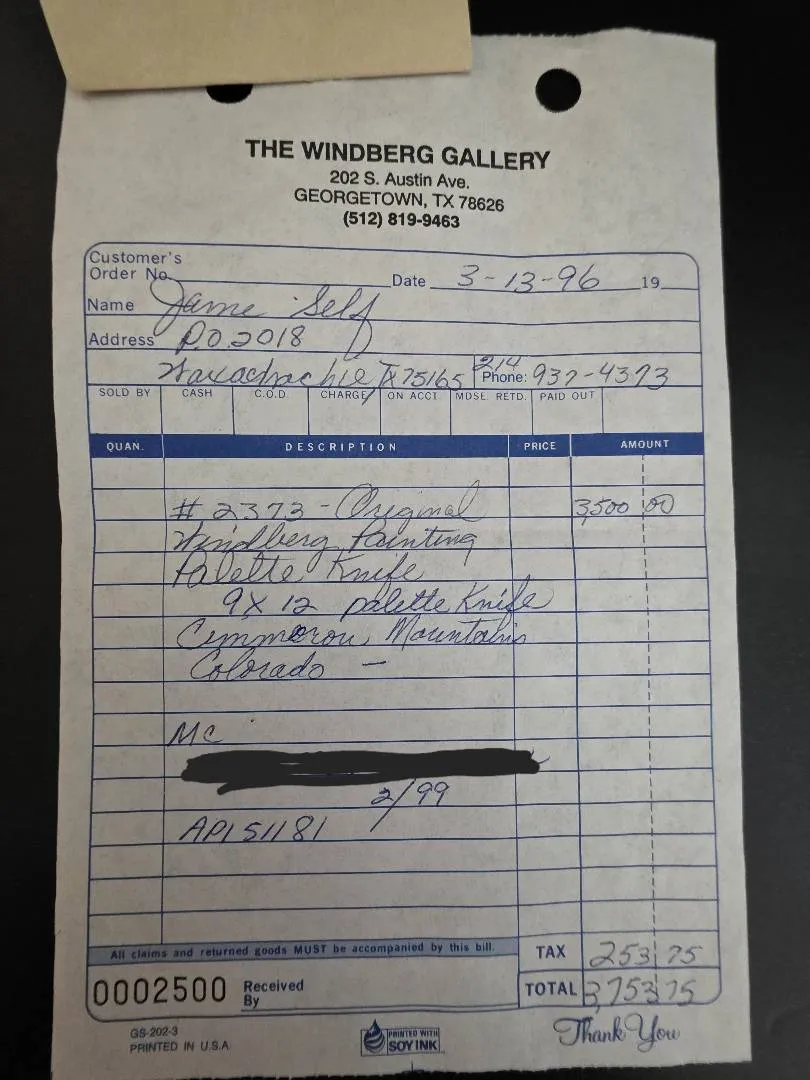 THE WINDBERG GALLERY
202 S. Austin Ave.
GEORGETOWN, TX 78626
(512) 819-9463
Customer's
Order No. Date 3-13-96 19
Name Jame Self
Address P.O. 2018
Waxachachie TX 75165 214 Phone: 937-4373
SOLD BY CASH C.O.D. CHARGE ON ACCT MDSE. RETD. PAID OUT
QUAN. DESCRIPTION PRICE AMOUNT
# 2373 - Original 3,500 00
Windberg Painting
Palette Knife
9 X 12 palette Knife
Cimmeron Mountains
Colorado -
MC
2/99
API 51181
All claims and returned goods MUST be accompanied by this bill. TAX 253 75
0002500 Received By TOTAL 3,753 75
GS-202-3
PRINTED IN U.S.A.
PRINTED WITH
SOY INK
Thank You